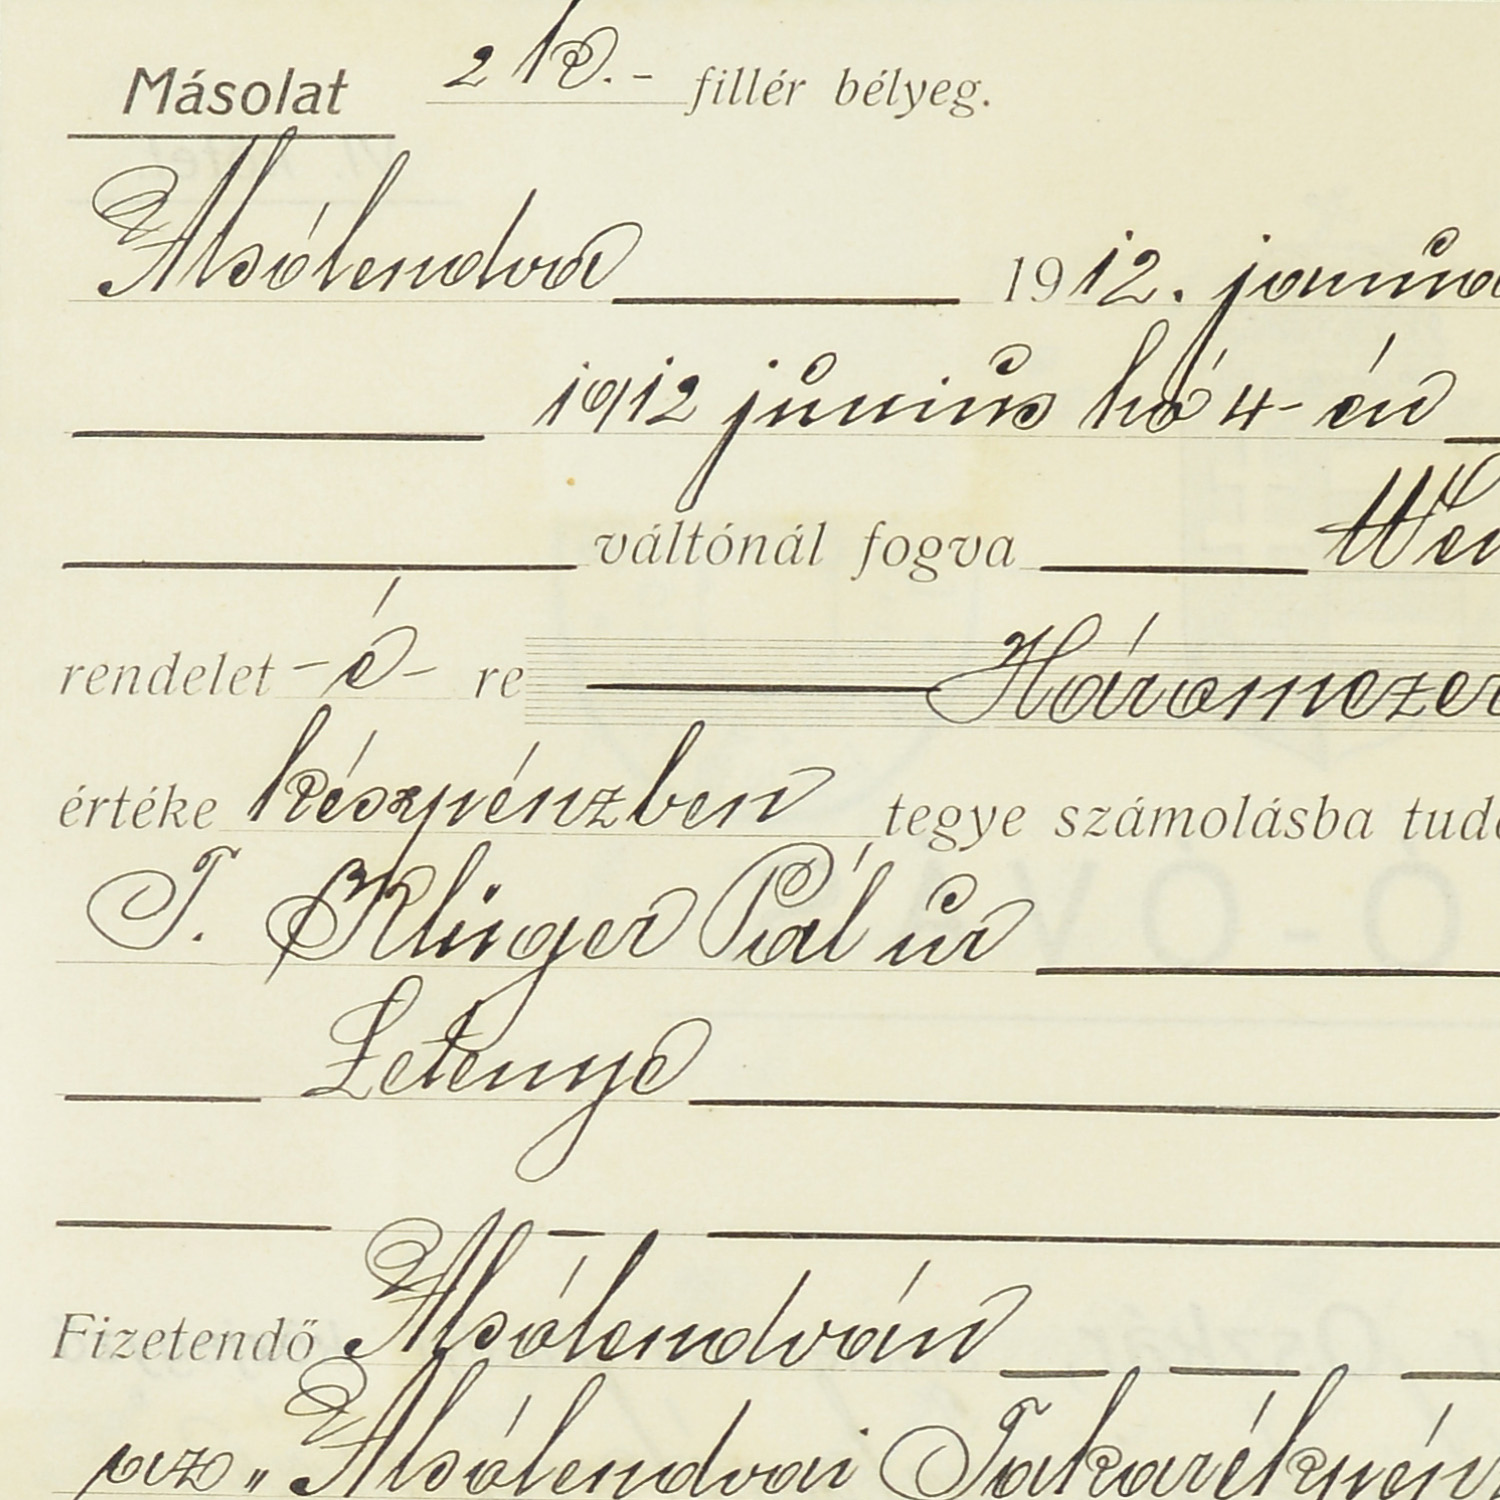 Másolat 2 K.- fillér bélyeg.
Alsólendva 1912. január
1912 június hó 4-én
váltónál fogva
rendelet -é- re Háromezer
értéke készpénzben tegye számolásba
T. Klinger Pál úr
Letenye
Fizetendő Alsólendván
az „Alsólendvai Takarékpénz